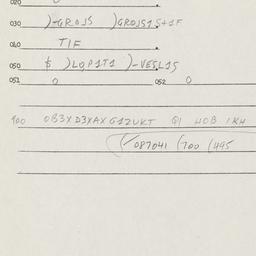 020 0
030 )-GROJS )GROJS1S+1F
040 TIF
050 $ )LQP1T1 )-VESL1S
051 0 052 0
100 0B3XD3XAXG12UKT Q1 HOB 1KH
087041 (700 (495